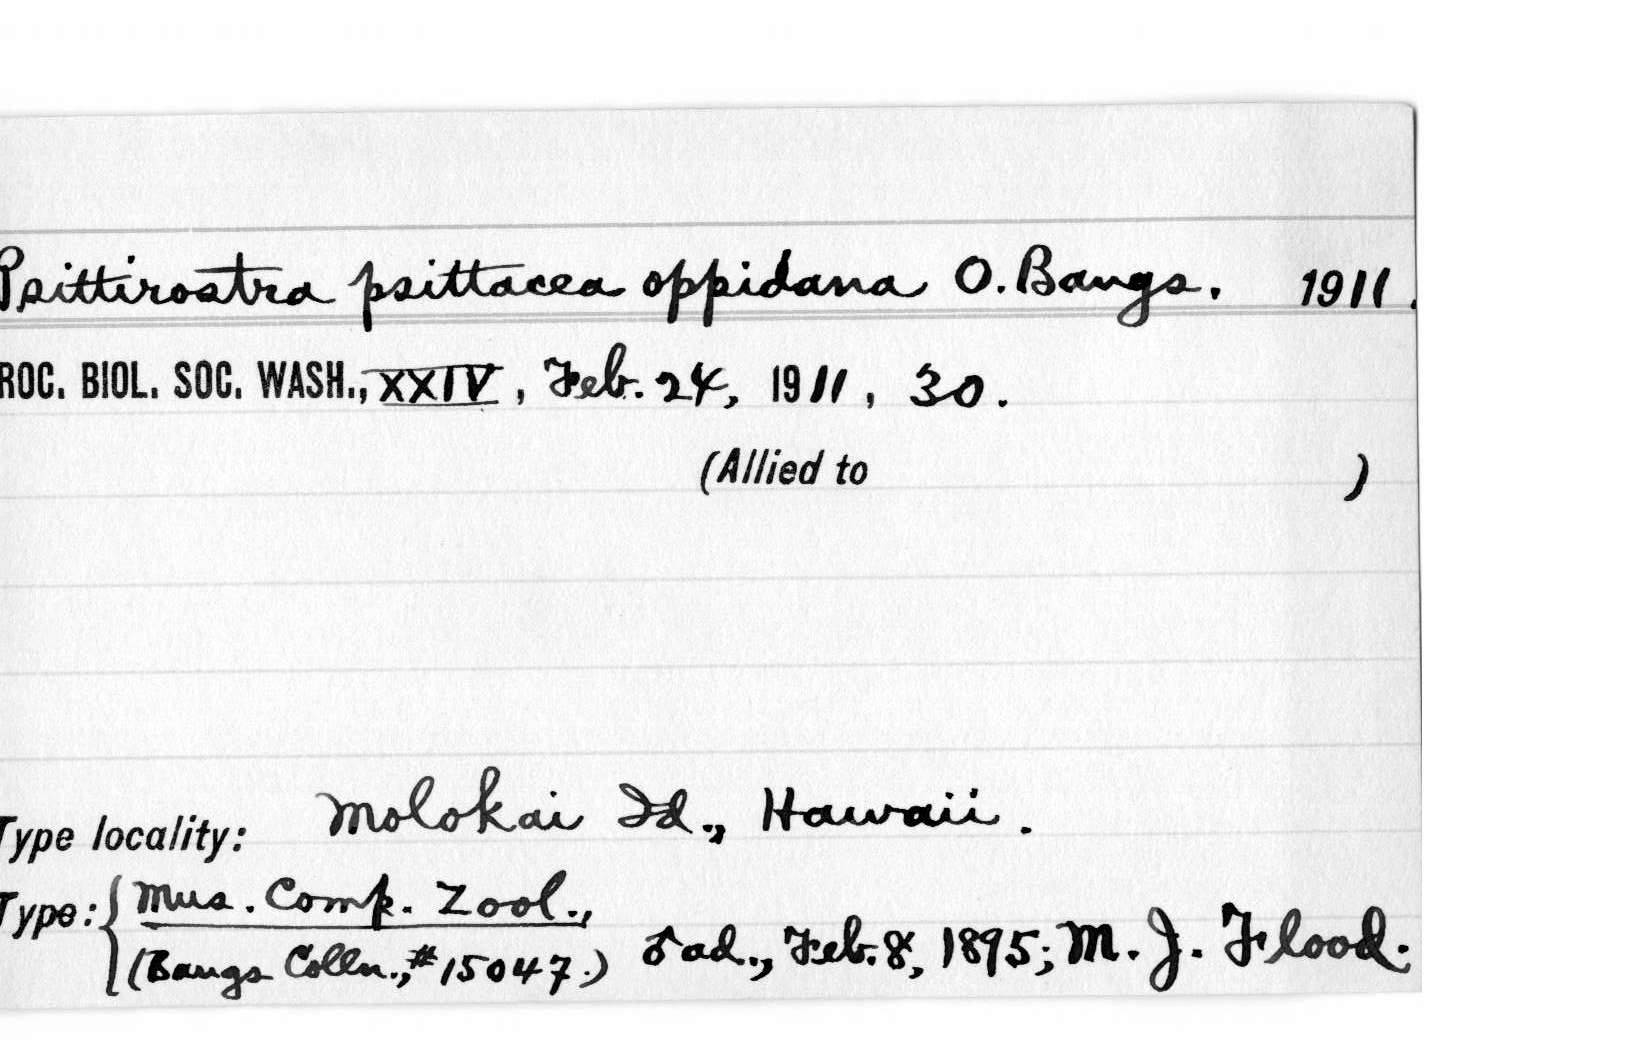 Psittirostra psittacea oppidana O. Bangs. 1911.
ROC. BIOL. SOC. WASH., XXIV, Feb. 24, 1911, 30.
(Allied to )
Type locality: Molokai Id., Hawaii.
Type: { Mus. Comp. Zool.,
(Bangs Colln., #15047.) ♂ ad., Feb. 8, 1895; M. J. Flood.